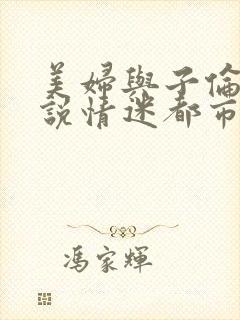 美婦與子倫
說情迷都市
馮家輝